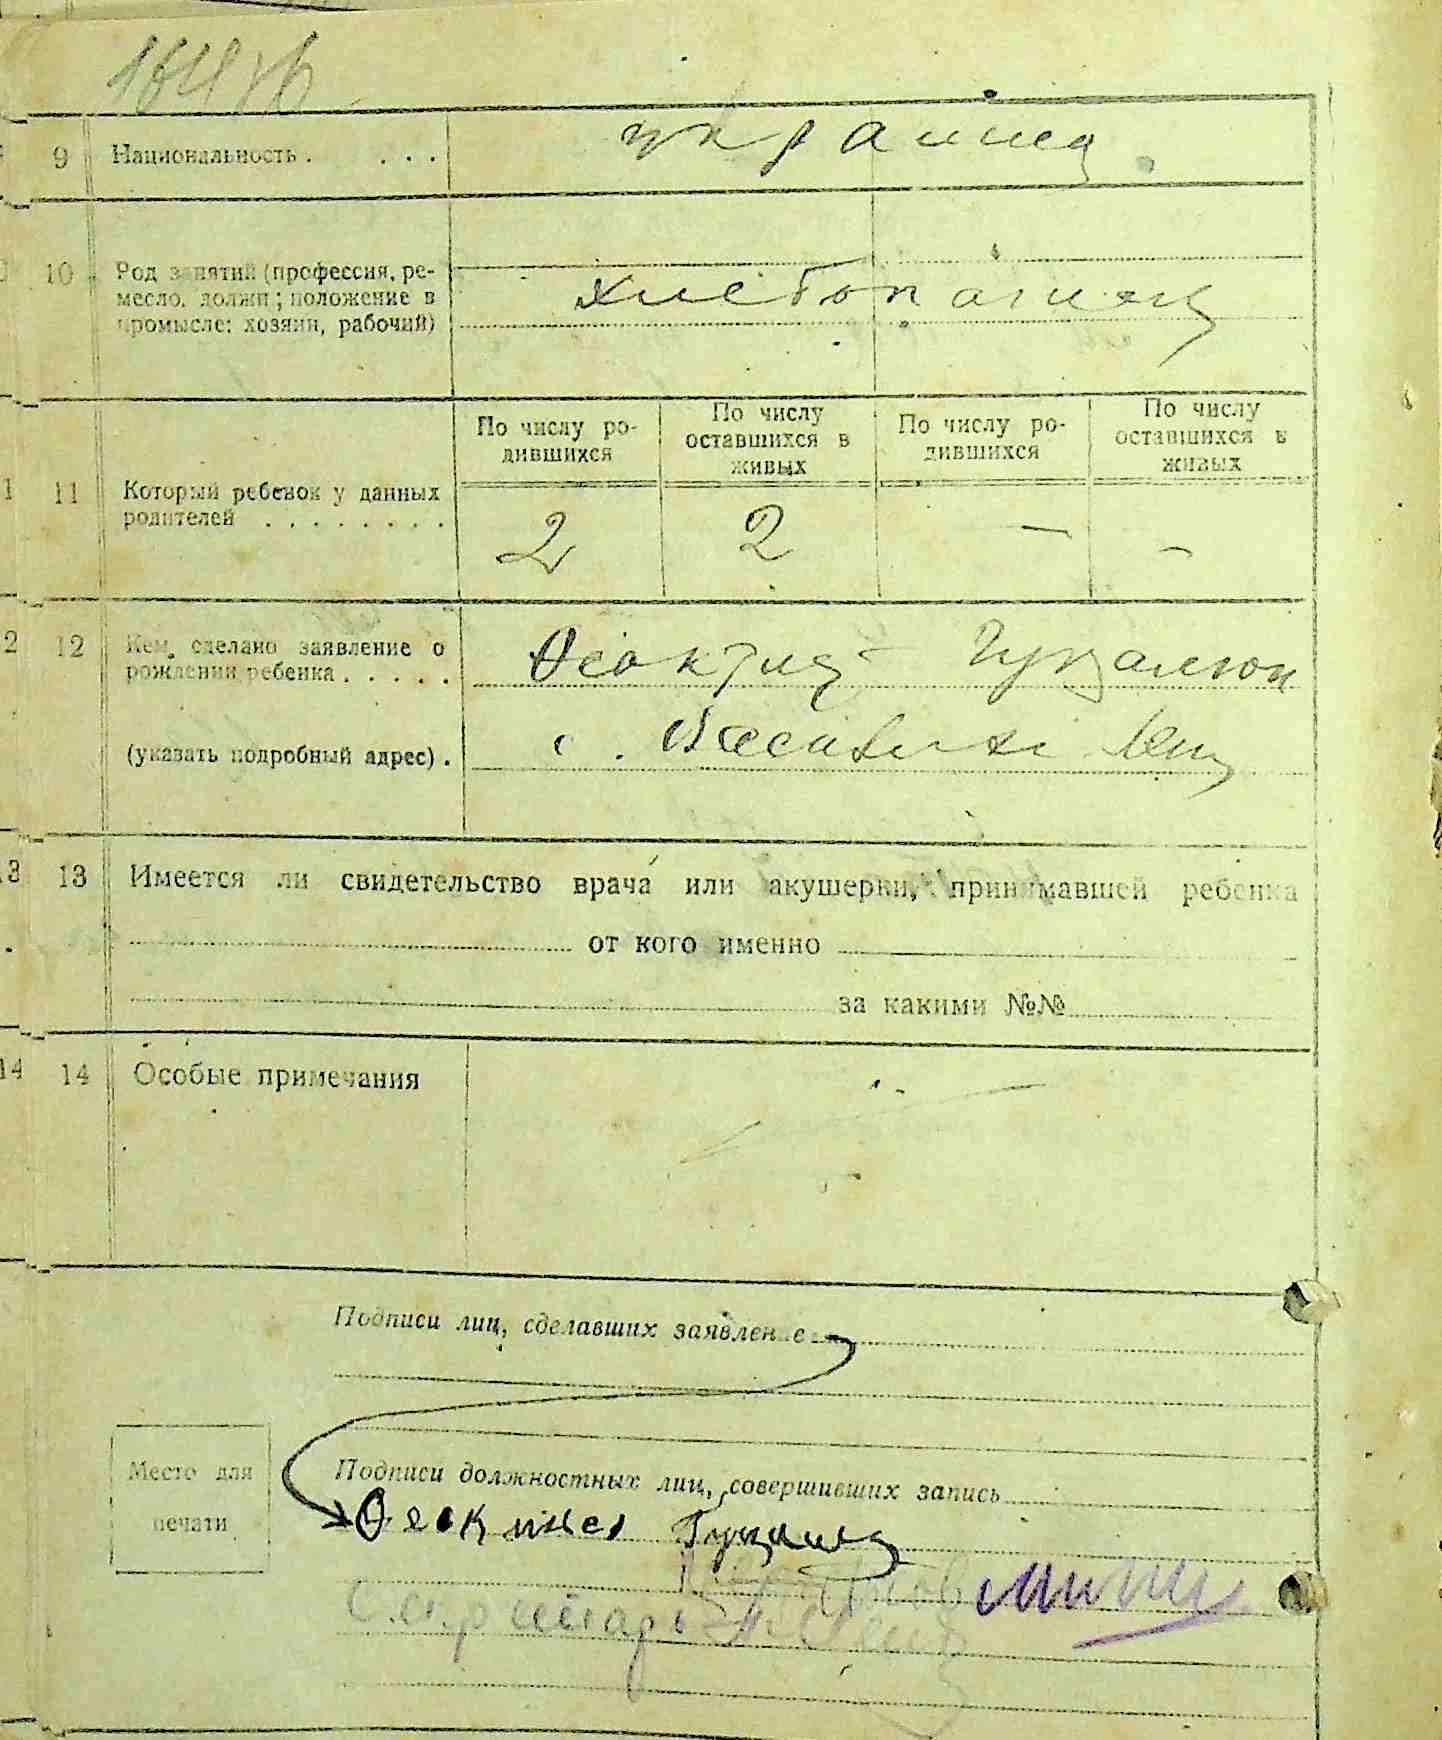 9 Национальность . . . . украинец
10 Род занятий (профессия, ре-
месло, должн; положение в
промысле: хозяин, рабочий)
хлебопашец
По числу ро-
дившихся
По числу
оставшихся в
живых
По числу ро-
дившихся
По числу
оставшихся в
живых
1 11 Который ребенок у данных
родителей . . . . . . . .
2 2 — —
2 12 Кем сделано заявление о
рождении ребенка . . . . .
(указать подробный адрес) .
с.
13 13 Имеется ли свидетельство врача или акушерки, принимавшей ребенка
от кого именно
за какими №№
14 14 Особые примечания
Подписи лиц, сделавших заявление
Место для
печати
Подписи должностных лиц, совершивших запись
Секретарь